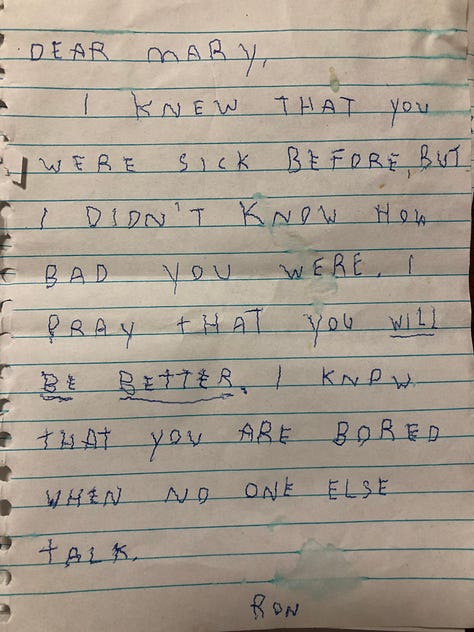 DEAR MARY,
I KNEW THAT YOU
WERE SICK BEFORE, BUT
I DIDN'T KNOW HOW
BAD YOU WERE. I
PRAY THAT YOU WILL
BE BETTER. I KNOW
THAT YOU ARE BORED
WHEN NO ONE ELSE
TALK.
RON